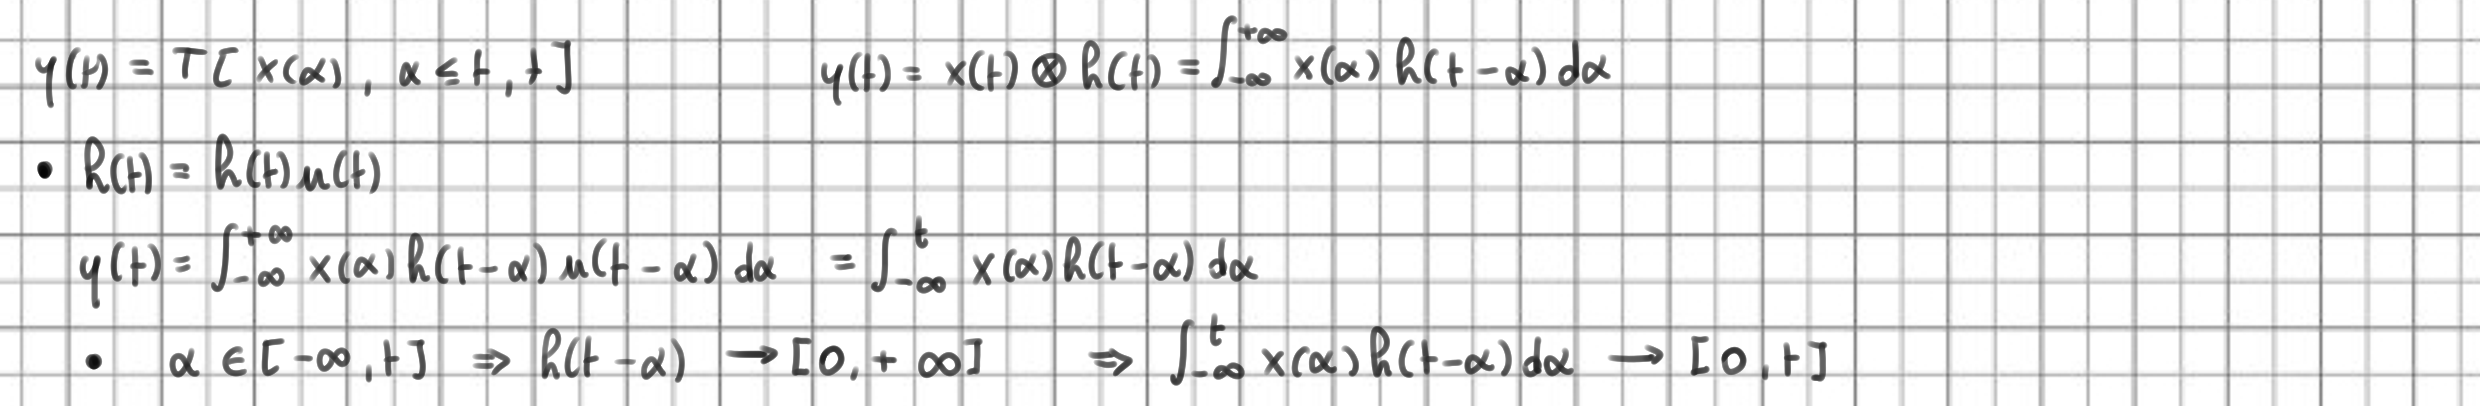 y(t) = T[ x(α) , α ≤ t , t ] y(t) = x(t) ⊗ h(t) = ∫_{-∞}^{+∞} x(α) h(t - α) dα
• h(t) = h(t) u(t)
y(t) = ∫_{-∞}^{+∞} x(α) h(t - α) u(t - α) dα = ∫_{-∞}^{t} x(α) h(t - α) dα
• α ∈ [ -∞ , t ] ⇒ h(t - α) → [ 0 , + ∞ ] ⇒ ∫_{-∞}^{t} x(α) h(t - α) dα → [ 0 , t ]